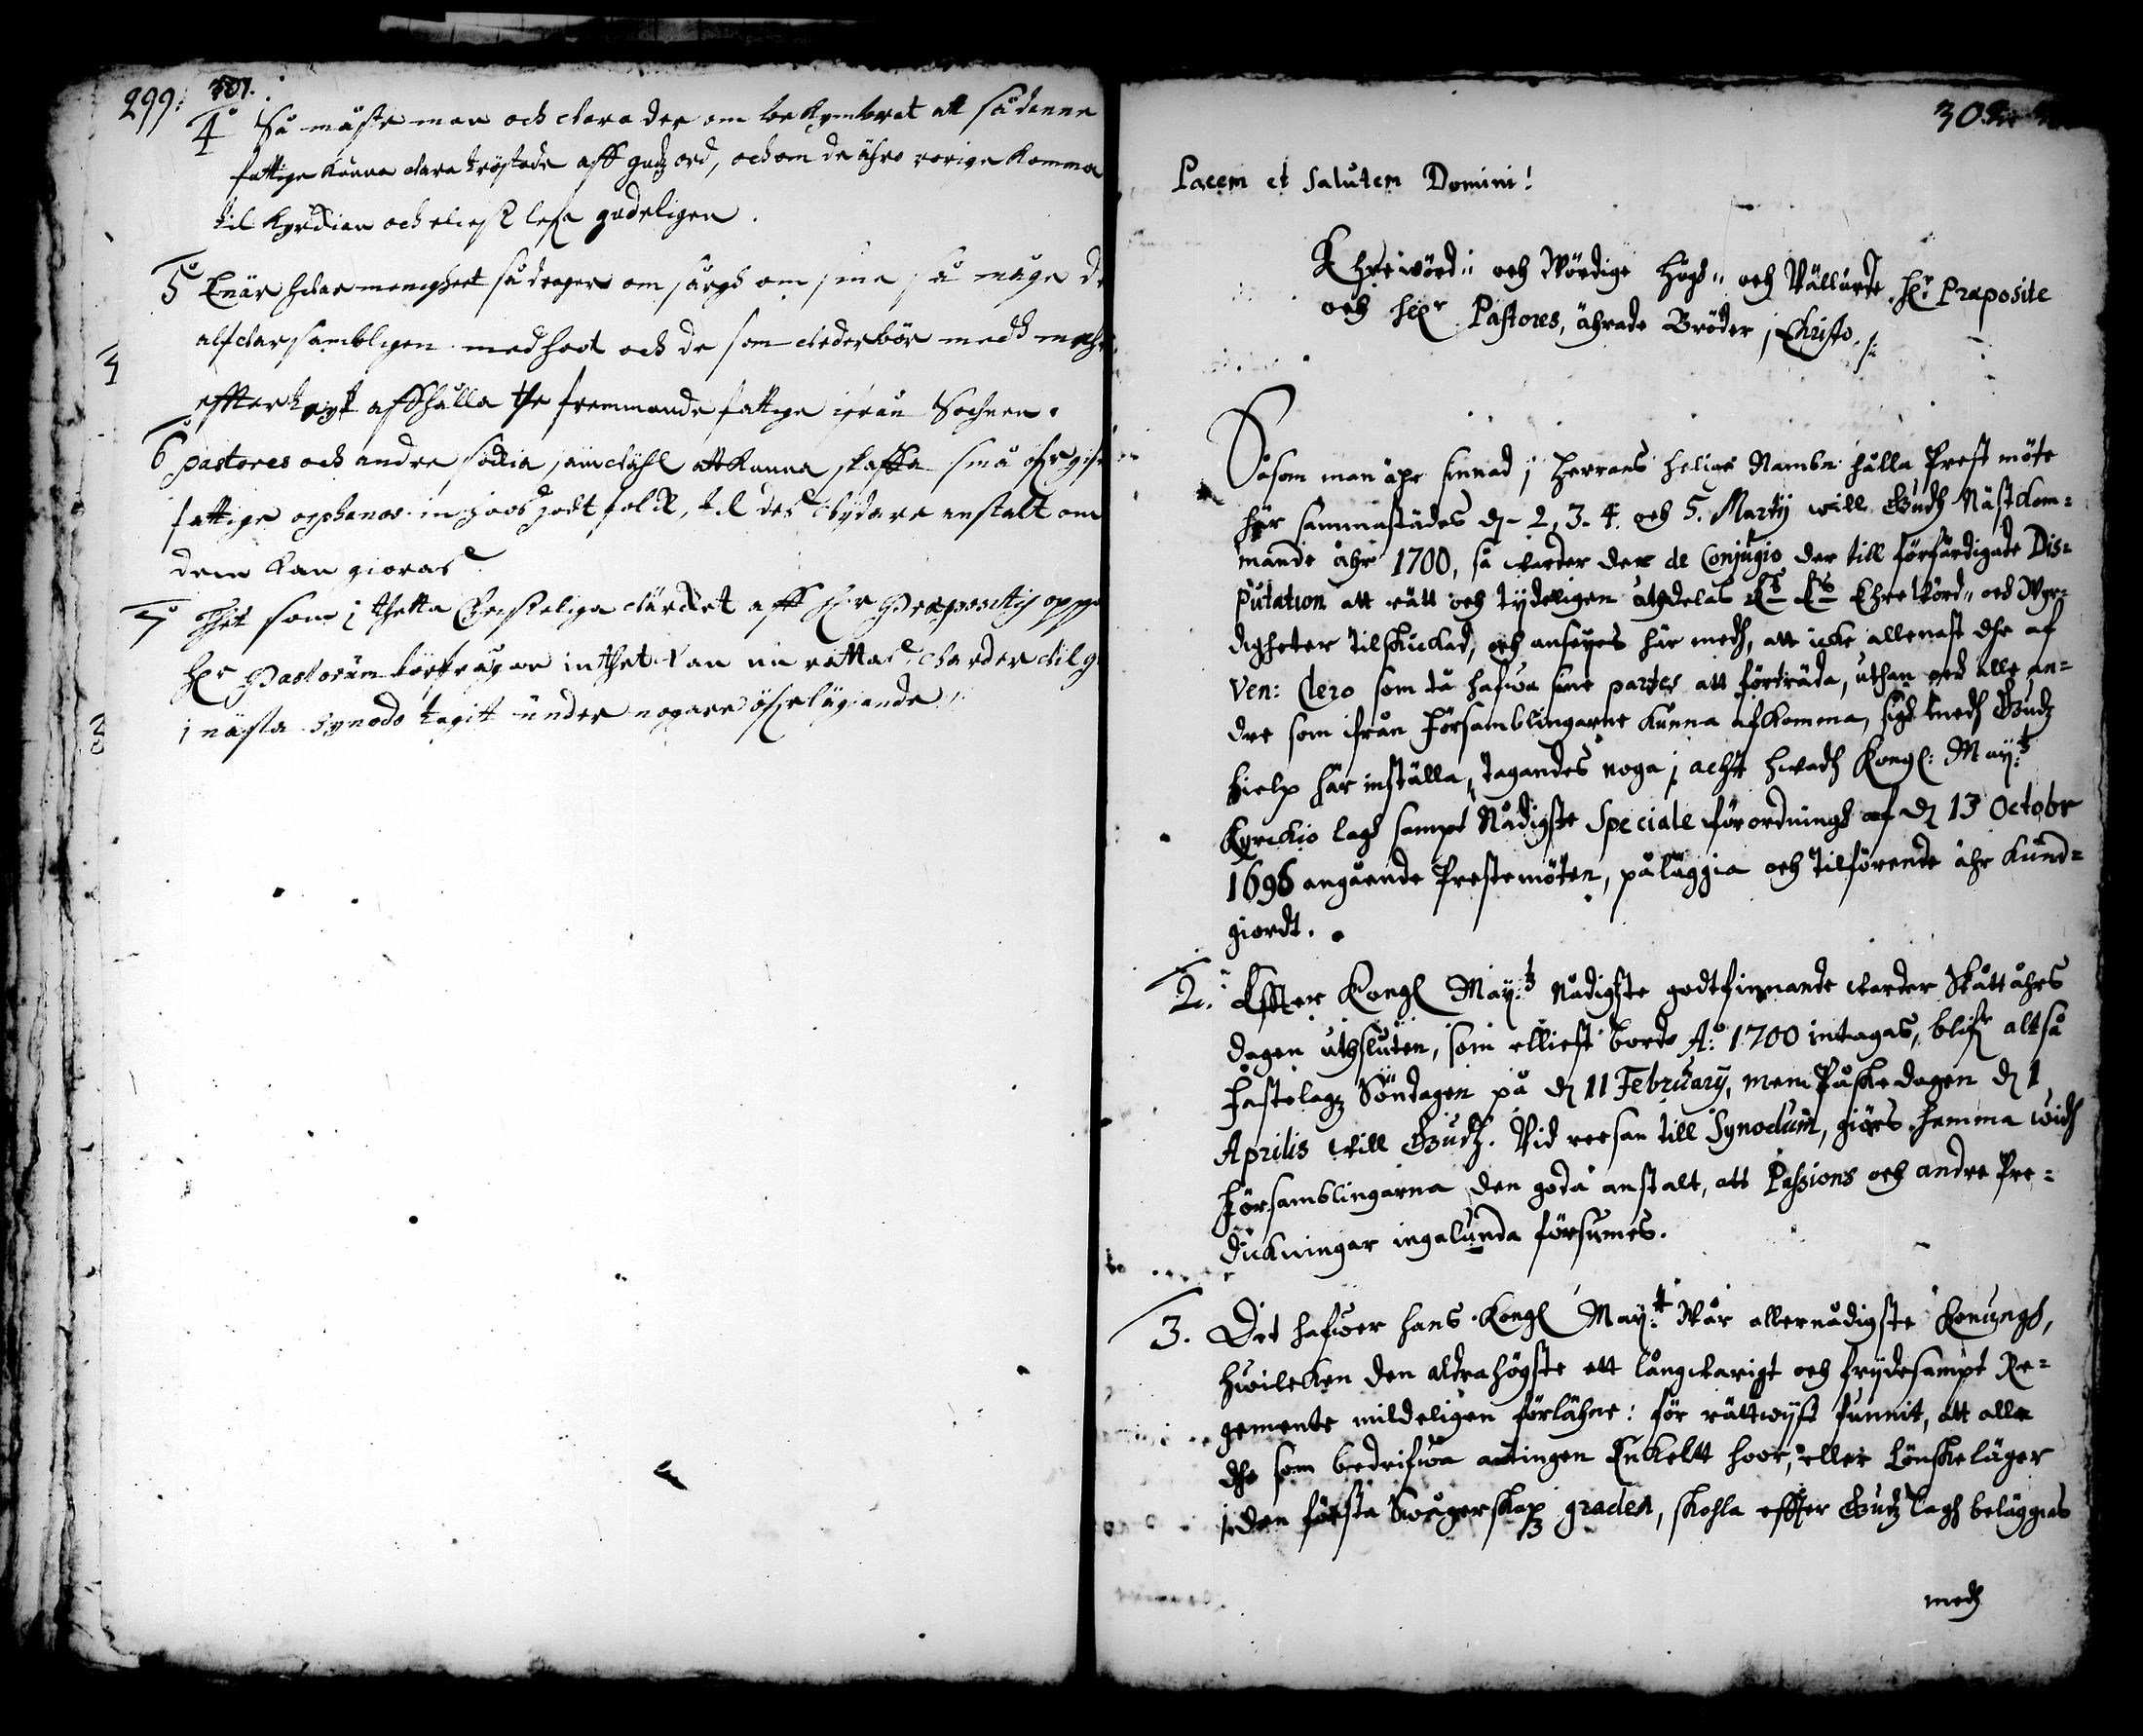 299. 301.
4o Så måste man och wara der om bekymbrat att sådanne
fattige kunna wara tröstade aff gudz ord, och om de ähro vorige komma
til Kyrckian och eliest lefa gudeligen.
5o Enär hwar menigheet så drager om sårgh om sina så måge de
alfwarsambligen medh hoot och de som wederbör medh macht
effter tryk affhålla the fremmande fattige ifrån Sochnen.
6o pastores och andre sökia jämwähl att kunna skaffa små öfrgifne
fattige orphanos in hoos godt folck, til des wijdare anstalt om
dem kan gioras.
7o Thet som i thetta Christeliga wärcket aff Hr Præpositij
Hr Pastorum förtrogne inthet kan nu rättas, warder
i nästa Synodo tagit under nogare öfwerläggiande.
302
Pacem et Salutem Domini!
Ehrewörd:: och Wördige Högd:: och Wällärde Hr Præposite
och Her Pastores, ährade Bröder i Christo.
Såsom man ähr sinnad i Herrans Helige Nambn hålla Prestmöte
här sammastädes d. 2, 3. 4. och 5. Martij will Gudh Nästkom=
mande åhr 1700, så warder der de Conjugio der till förfärdigade Dis=
putation att rätt och tydeligen uthdelas Es Es Ehrewörd:: och Wyr=
digheter tilskickad, och anseijes här medh, att icke allenast dhe af
Ven: Clero som då hafwa sine partes att förträda, uthan och alle an=
dre som ifrån Församblingarne kunna afkomma, sigh medh Gudz
hielp här inställa, tagandes noga i acht hwadh Kongl: May:tz
Kyrckio lagh sampt Nådigste Speciale förordningh af d. 13 Octobr
1696 angående Prestemöten, påläggia och tilförende åhr kund=
giordt.
2. Effter Kongl May:tz Nådigste godtfinnande warder Skått åhrs
dagen uthsluten, som elliest borde Ao: 1700 intagas, blifr altså
Fastelagz Söndagen på d. 11 February, men Påskedagen d. 1
Aprilis will Gudh. Vid reesan till Synodum, giörs hemma widh
Församblingarna den goda anstalt, att Passions och andre Pre=
dickningar ingalunda försumes.
3. Det hafwer Hans Kongl May:tt Wår allernådigste Konungh,
hwilcken den aldrahögste ett långwarigt och frijdesampt Re=
gemente mildeligen förlähne: för rättwijst funnit, att alle
dhe som bedrifwa antingen Enckeltt hoor, eller Lönskeläger
i den första Swågerskapz graden, skohla effter Gudz lagh beläggias
medh